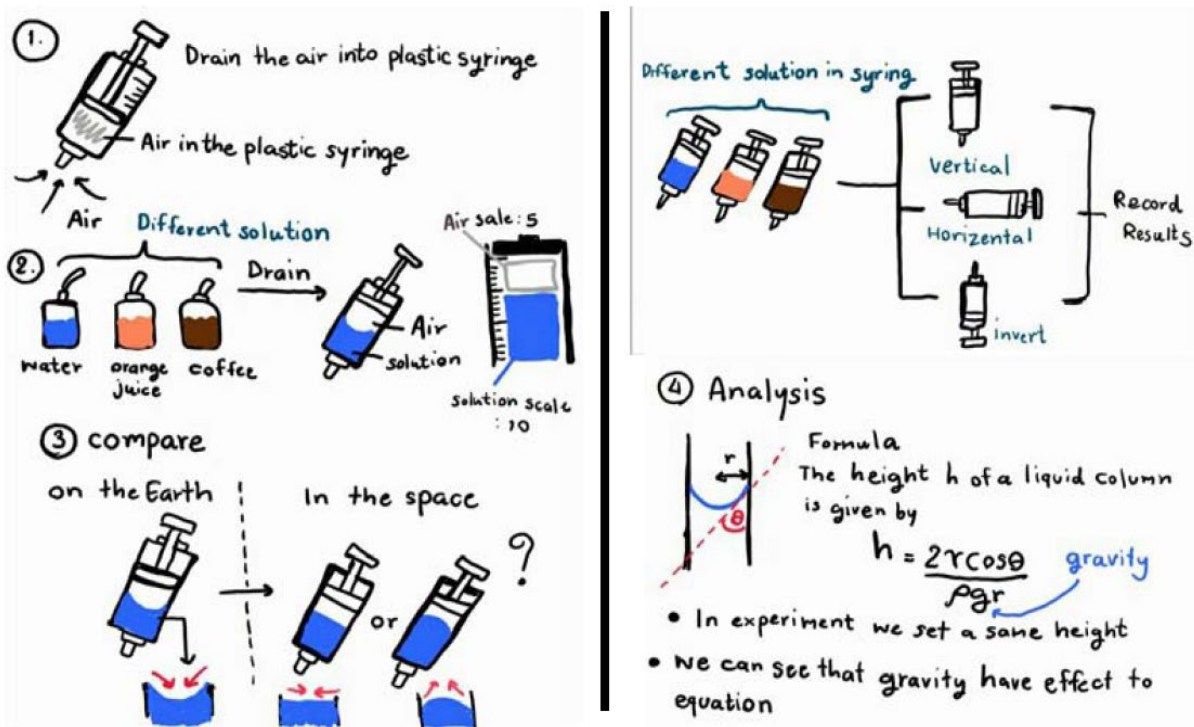 1.
Drain the air into plastic syringe
Air in the plastic syringe
Air
2.
Different solution
water
orange
juice
coffee
Drain
Air
solution
Air sale: 5
solution scale
: 10
3 compare
on the Earth
In the space
or
?
Different solution in syring
vertical
Horizental
invert
Record
Results
4 Analysis
r
θ
Formula
The height h of a liquid column
is given by
h = 2γcosθ
ρgr
gravity
• In experiment we set a same height
• we can see that gravity have effect to
equation